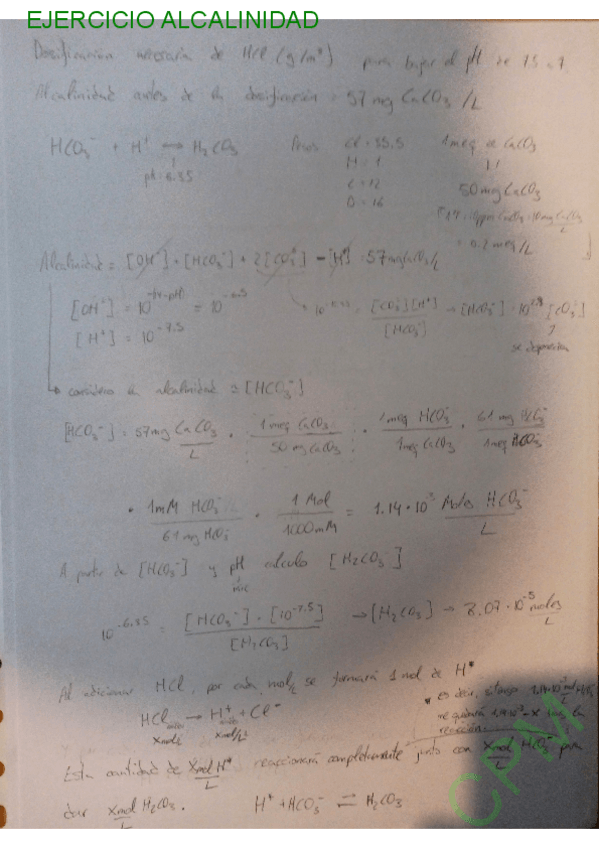 EJERCICIO ALCALINIDAD
Dosificación necesaria de HCl (g/m³) para bajar el pH de 7.5 a 7
Alcalinidad antes de la dosificación = 57 mg CaCO₃/L
HCO₃⁻ + H⁺ ⟷ H₂CO₃
pk=6.35
Pesos Cl = 35.5
H = 1
C = 12
O = 16
1 meq de CaCO₃
50 mg CaCO₃
= 0.2 meq/L
Alcalinidad = [OH⁻] + [HCO₃⁻] + 2[CO₃²⁻] - [H⁺] = 57 mg CaCO₃/L
[OH⁻] = 10^-14-pH = 10^-6.5
[H⁺] = 10^-7.5
= [CO₃²⁻][H⁺] / [HCO₃⁻] → [HCO₃⁻]
[CO₃²⁻]
se desprecia
considero la alcalinidad = [HCO₃⁻]
[HCO₃⁻] = 57 mg CaCO₃/L · 1 meq CaCO₃/50 mg CaCO₃ · 1 meq HCO₃⁻/1 meq CaCO₃ · 61 mg HCO₃⁻/1 meq HCO₃⁻
· 1mM HCO₃⁻/61 mg HCO₃⁻ · 1 Mol/1000 mM = 1.14·10⁻³ Moles HCO₃⁻/L
A partir de [HCO₃⁻] y pH calculo [H₂CO₃]
10^-6.35 = [HCO₃⁻]·[10^-7.5] / [H₂CO₃] → [H₂CO₃] → 8.07·10⁻⁵ moles/L
Al adicionar HCl, por cada mol/L se formará 1 mol de H⁺
HCl → H⁺ + Cl⁻
x mol/L x mol/L
* es decir, si tengo
me quedará - x tras la
reacción.
Esta cantidad de x mol H⁺/L reaccionará completamente junto con x mol/L HCO₃⁻ para
dar x mol/L H₂CO₃. H⁺ + HCO₃⁻ ⇌ H₂CO₃
CPM